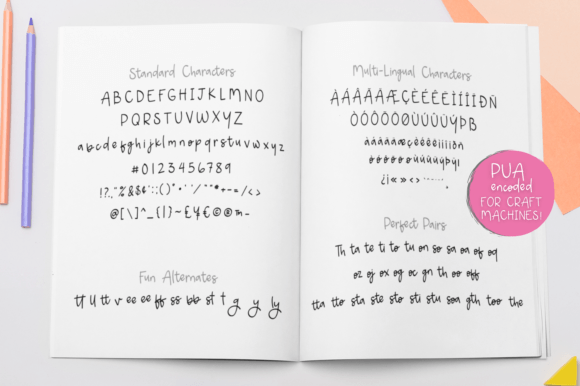 Standard Characters
ABCDEFGHIJKLMNO
PQRSTUVWXYZ
abcdefghijklmnopqrstuvwxyz
#0123456789
@[\]^_{|}~£¥€©®™-
Fun Alternates
tt ll tt v ee ee ff ss bb st t g y ly
Multi-Lingual Characters
ÀÁÂÃÄÅÆÇÈÉÊËÌÍÎÏÐÑ
ÒÓÔÕÖØÙÚÛÜÝÞß
àáâãäåæçèéêëìíîïðñ
Perfect Pairs
Th ta te ti to tu on so sa oa of oq
oz oj ox og oc gn th oo off
tta tto sta ste sto sti stu soa gth too the
PUA
encoded
FOR CRAFT
MACHINES!